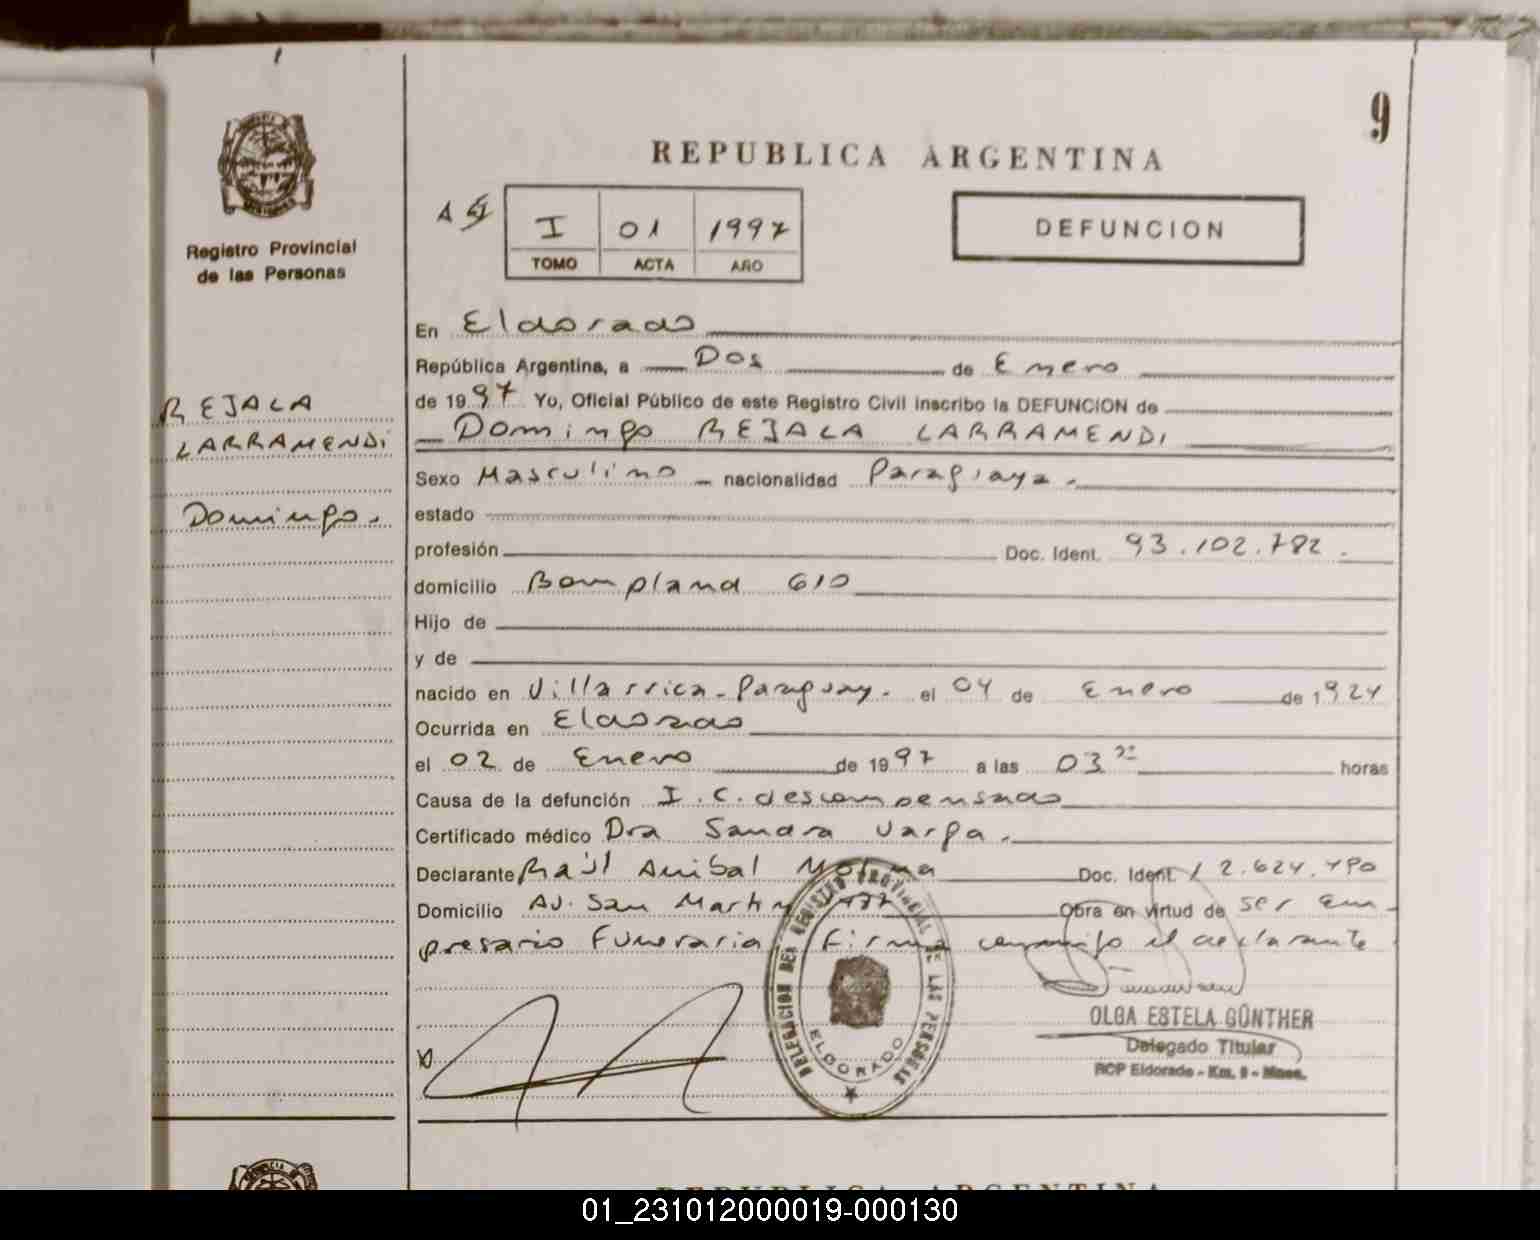 9
REPUBLICA ARGENTINA
Registro Provincial
de las Personas
I 01 1997
TOMO ACTA AÑO
DEFUNCION
En Eldorado
República Argentina, a Dos de Enero
de 1997 Yo, Oficial Público de este Registro Civil inscribo la DEFUNCION de
REJALA
LARRAMENDI
Domingo.
Domingo REJALA LARRAMENDI
Sexo Masculino nacionalidad Paraguaya.
estado
profesión Doc. Ident. 93.102.782.
domicilio Bompland 610
Hijo de
y de
nacido en Villarrica-Paraguay. el 04 de Enero de 1924
Ocurrida en Eldorado
el 02 de Enero de 1997 a las 03 horas
Causa de la defunción I.C. descompensado
Certificado médico Dra Sandra Varga.
Declarante Raúl Anibal Molina Doc. Ident. 12.624.490
Domicilio Av. San Martin Obra en virtud de ser em-
presario Funeraria Firma conmigo el declarante
DELEGACION DEL REGISTRO PROVINCIAL DE LAS PERSONAS
ELDORADO
OLGA ESTELA GÜNTHER
Delegado Titular
RCP Eldorado - Km. 9 - Mnes.
REPUBLICA ARGENTINA
01_231012000019-000130